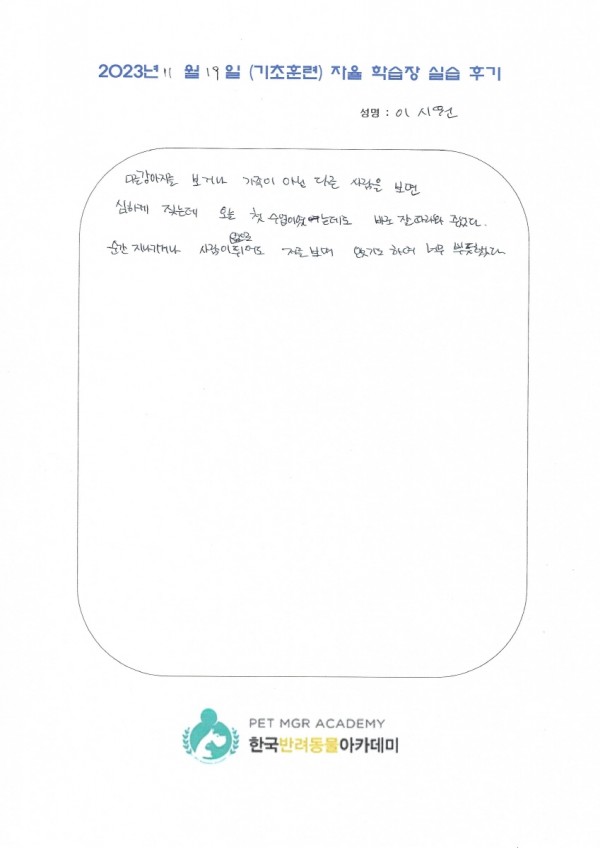 2023년 11 월 19 일 (기초훈련) 자율 학습장 실습 후기
성명 : 이 시현
다른강아지를 보거나 가족이 아닌 다른 사람은 보면
심하게 짖는데 오늘 첫 수업이었 는데도 바로 잘따라와 줬다.
순간 지나가거나 사람이 뛰어도 저를 보며 앉기도 하여 너무 뿌듯했다.
PET MGR ACADEMY
한국반려동물아카데미